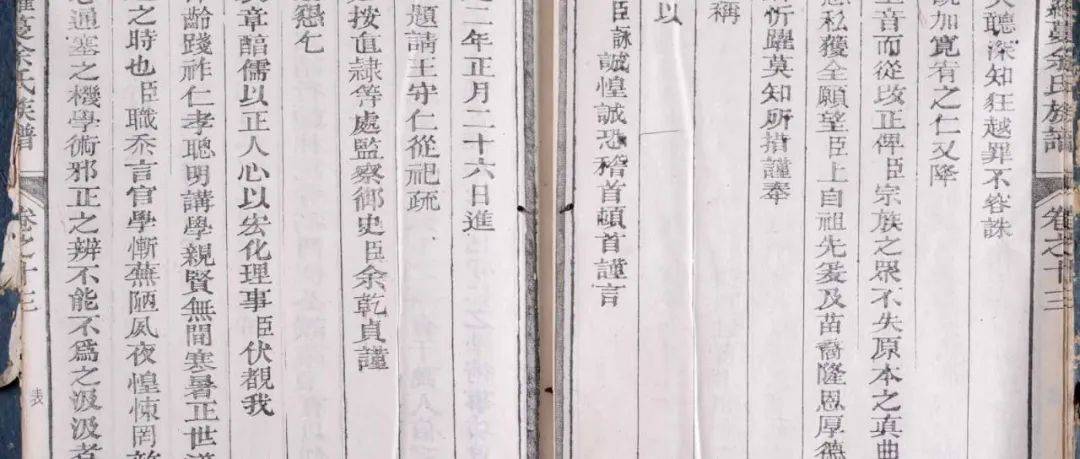 余氏族譜
卷之十三
天聽深知狂越罪不容誅
既加寬宥之仁又降
玉音而從改正俾臣宗族之眾不失原本之真曲
私獲全願望臣上自祖先爰及苗裔隆恩厚德
忻躍莫知所措謹奉
稱
以
臣詠誠惶誠恐稽首頓首謹言
二年正月二十六日進
題請王守仁從祀疏
按直隸等處監察御史臣余乾貞謹
懇乞
表章醕儒以正人心以宏化理事臣伏覩我
齡踐祚仁孝聰明講學親賢無間寒暑正世道
之時也臣職忝言官學慚蕪陋夙夜惶悚罔
通塞之機學術邪正之辨不能不爲之汲汲者
余氏族譜
卷之十三
表